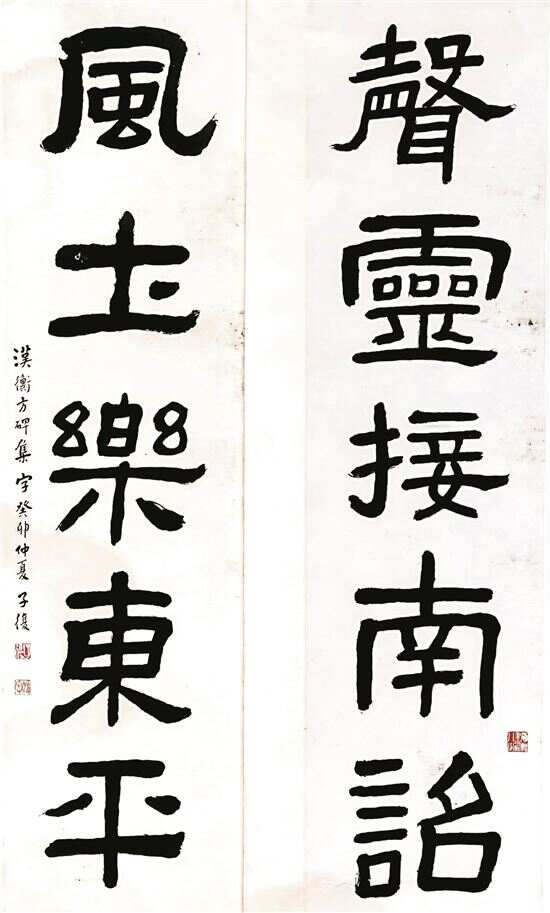 聲靈接南詔
風土樂東平
漢衡方碑集字癸卯仲夏子復